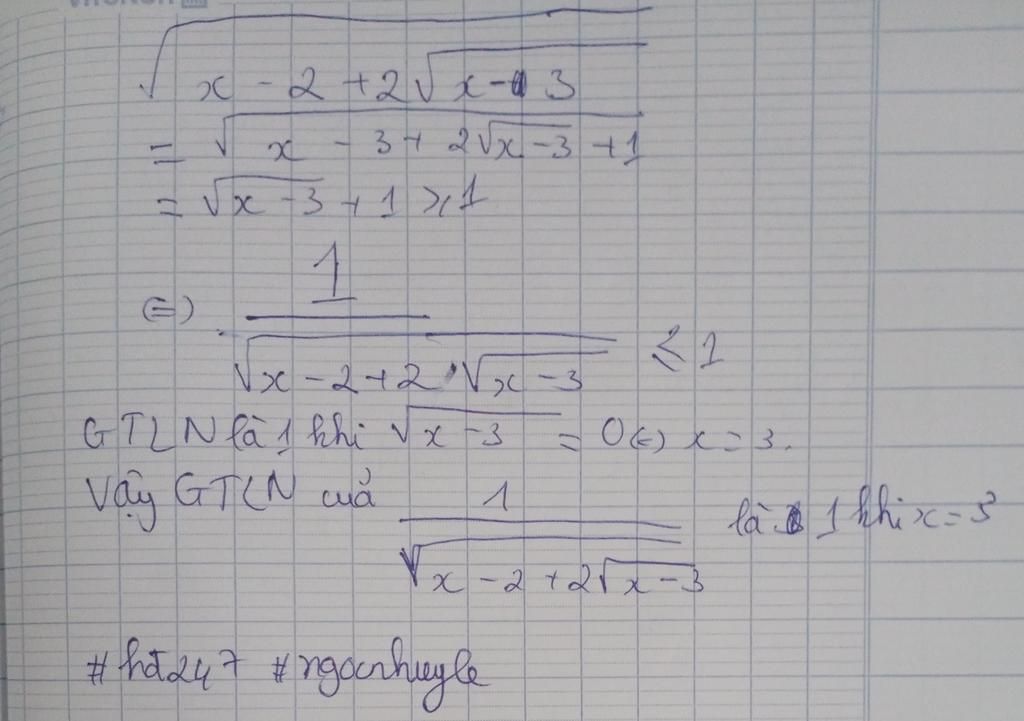 √(x - 2 + 2√(x - 3))
= √(x - 3 + 2√(x - 3) + 1)
= √(x - 3) + 1 ≥ 1
(=) 1/√(x - 2 + 2√(x - 3)) ≤ 1
GTLN là 1 khi √(x - 3) = 0 (=) x = 3.
Vậy GTLN của 1/√(x - 2 + 2√(x - 3)) là 1 khi x = 3
#hđ247 #ngocnhuyle